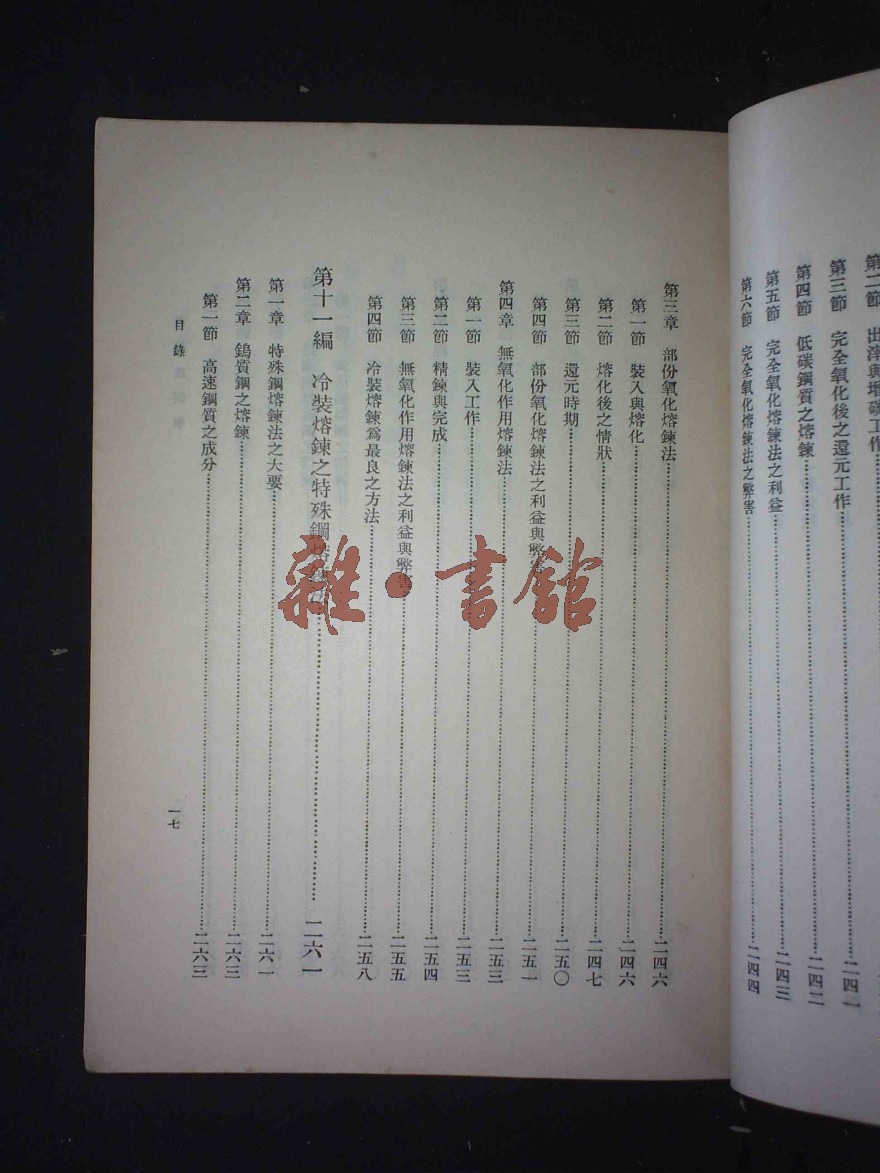 第三節 完全氧化後之還元工作 二四一
第四節 低碳鋼質之熔鍊 二四二
第五節 完全氧化熔鍊法之利益 二四三
第六節 完全氧化熔鍊法之弊害 二四四
第三章 部份氧化熔鍊法 二四六
第一節 裝入與熔化 二四六
第二節 熔化後之情狀 二四七
第三節 還元時期 二五〇
第四節 部份氧化熔鍊法之利益與弊害 二五一
第四章 無氧化作用熔鍊法 二五三
第一節 裝入工作 二五三
第二節 精鍊與完成 二五四
第三節 無氧化作用熔鍊法之利益與弊害 二五五
第四節 冷裝熔鍊爲最良之方法 二五八
第十一編 冷裝熔鍊之特殊鋼熔鍊法 二六一
第一章 特殊鋼熔鍊法之大要 二六一
第二章 鎢質鋼之熔鍊 二六三
第一節 高速鋼質之成分 二六三
目錄
一七
雜·書館